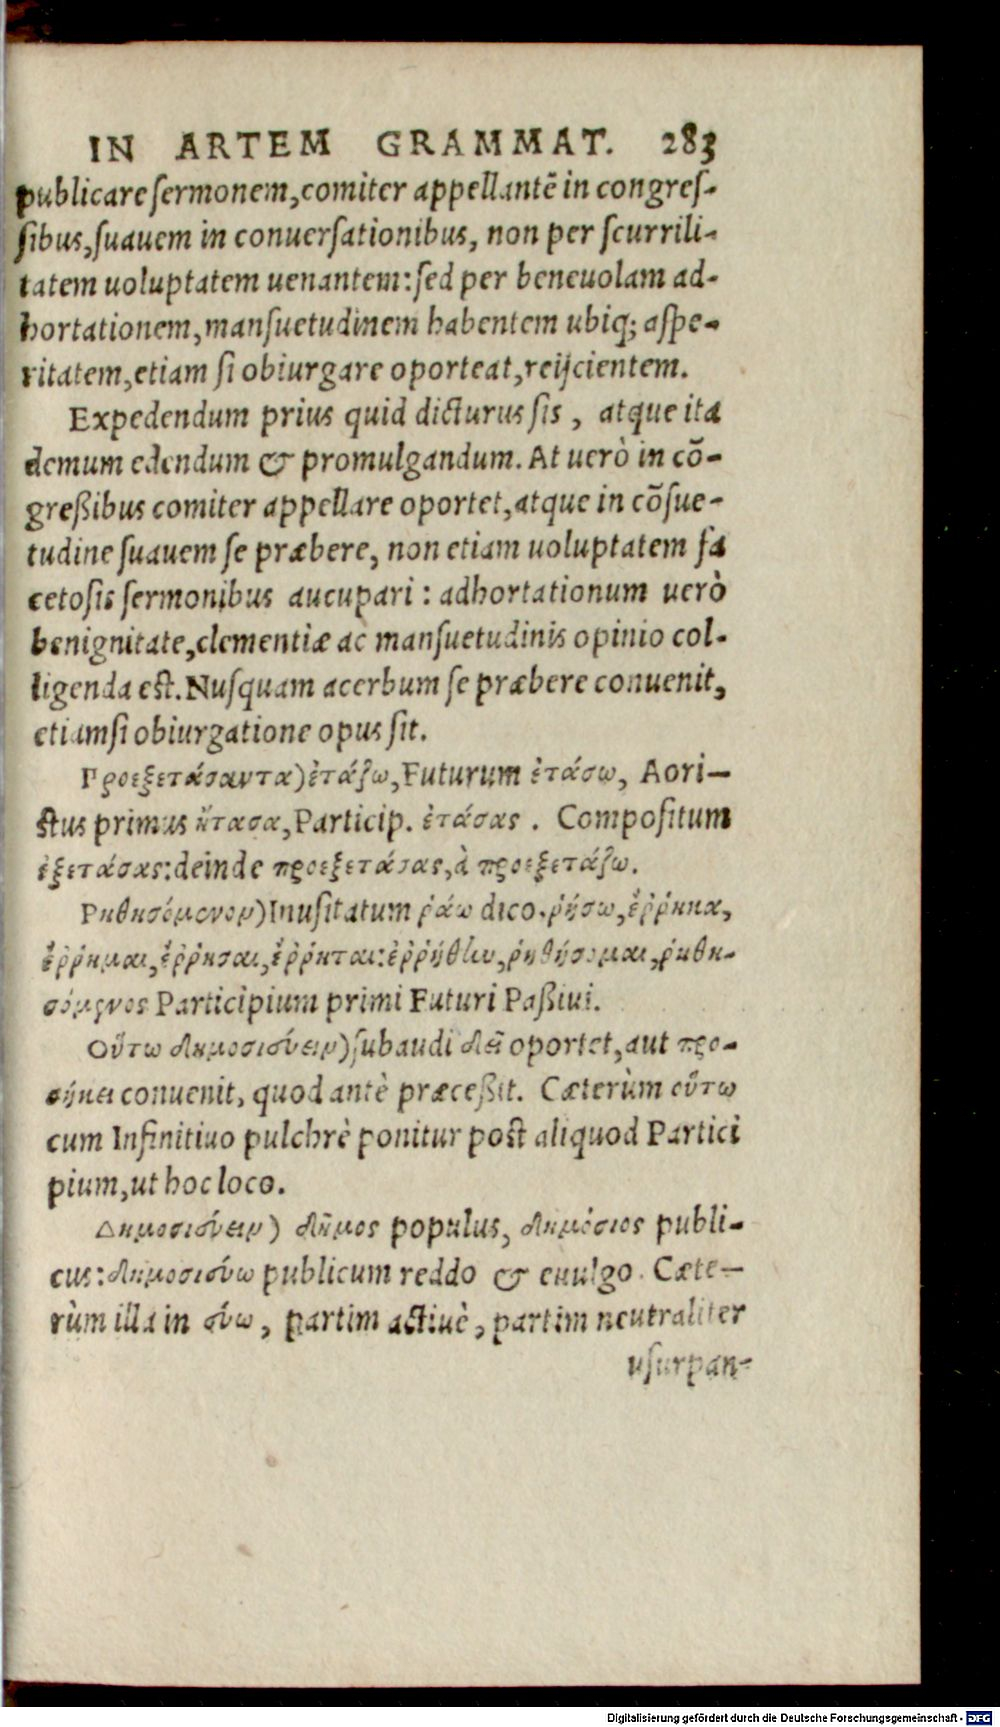 IN ARTEM GRAMMAT. 283
publicare sermonem, comiter appellantẽ in congreſ-
ſibus, ſuauem in conuerſationibus, non per ſcurrili-
tatem uoluptatem uenantem: ſed per beneuolam ad-
hortationem, manſuetudinem habentem ubiq; aſpe-
ritatem, etiam ſi obiurgare oporteat, reijcientem.
Expedendum prius quid dicturus ſis, atque ita
demum edendum & promulgandum. At uerò in cõ-
greßibus comiter appellare oportet, atque in cõſue-
tudine ſuauem ſe præbere, non etiam uoluptatem fa
cetoſis ſermonibus aucupari: adhortationum uerò
benignitate, clementiæ ac manſuetudinis opinio col-
ligenda eſt. Nuſquam acerbum ſe præbere conuenit,
etiamſi obiurgatione opus ſit.
Προεξετάσαντα) ἐτάζω, Futurum ἐτάσω, Aori-
ſtus primus ἤτασα, Particip. ἐτάσας. Compoſitum
ἐξετάσας: deinde προεξετάσας, à προεξετάζω.
Ρηθησόμενον) Inuſitatum ῥάω dico. ῥήσω, ἔῤῥηκα,
ἔῤῥημαι, ἔῤῥησαι, ἔῤῥηται: ἐῤῥήθην, ῥηθήσομαι, ῥηθη-
σόμενος Participium primi Futuri Paßiui.
Οὕτω δημοσιεύειν) ſubaudi δεῖ oportet, aut προ-
σήκει conuenit, quod antè præceßit. Cæterùm οὕτω
cum Infinitiuo pulchrè ponitur poſt aliquod Partici
pium, ut hoc loco.
Δημοσιεύειν) δῆμος populus, δημόσιος publi-
cus: δημοσιεύω publicum reddo & euulgo. Cæte-
rùm illa in εύω, partim actiuè, partim neutraliter
uſurpan-
Digitalisierung gefördert durch die Deutsche Forschungsgemeinschaft - DFG